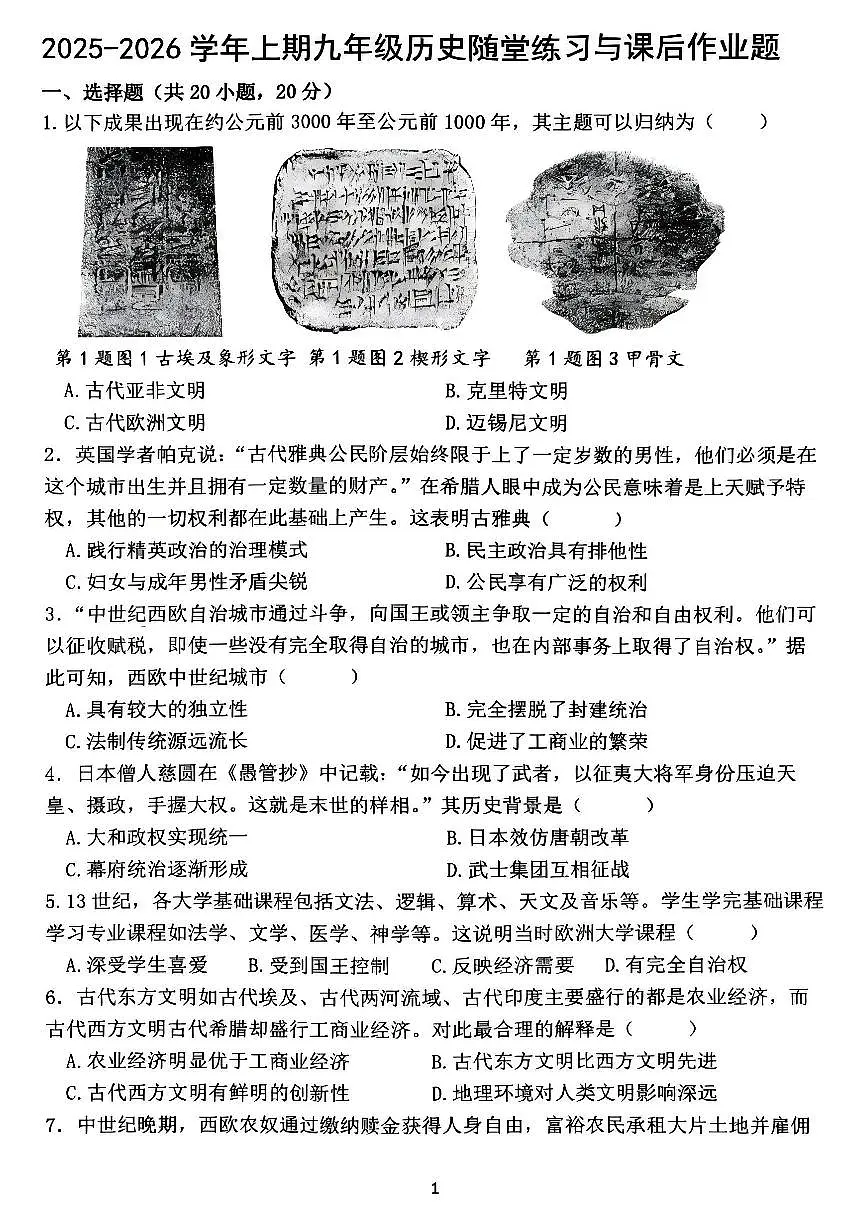 2025-2026 学年上期九年级历史随堂练习与课后作业题
一、选择题（共 20 小题，20 分）
1. 以下成果出现在约公元前 3000 年至公元前 1000 年，其主题可以归纳为（　　）
第 1 题图 1 古埃及象形文字 第 1 题图 2 楔形文字 第 1 题图 3 甲骨文
A. 古代亚非文明 B. 克里特文明
C. 古代欧洲文明 D. 迈锡尼文明
2. 英国学者帕克说：“古代雅典公民阶层始终限于上了一定岁数的男性，他们必须是在
这个城市出生并且拥有一定数量的财产。”在希腊人眼中成为公民意味着是上天赋予特
权，其他的一切权利都在此基础上产生。这表明古雅典（　　）
A. 践行精英政治的治理模式 B. 民主政治具有排他性
C. 妇女与成年男性矛盾尖锐 D. 公民享有广泛的权利
3. “中世纪西欧自治城市通过斗争，向国王或领主争取一定的自治和自由权利。他们可
以征收赋税，即使一些没有完全取得自治的城市，也在内部事务上取得了自治权。”据
此可知，西欧中世纪城市（　　）
A. 具有较大的独立性 B. 完全摆脱了封建统治
C. 法制传统源远流长 D. 促进了工商业的繁荣
4. 日本僧人慈圆在《愚管抄》中记载：“如今出现了武者，以征夷大将军身份压迫天
皇、摄政，手握大权。这就是末世的样相。”其历史背景是（　　）
A. 大和政权实现统一 B. 日本效仿唐朝改革
C. 幕府统治逐渐形成 D. 武士集团互相征战
5. 13 世纪，各大学基础课程包括文法、逻辑、算术、天文及音乐等。学生学完基础课程
学习专业课程如法学、文学、医学、神学等。这说明当时欧洲大学课程（　　）
A. 深受学生喜爱 B. 受到国王控制 C. 反映经济需要 D. 有完全自治权
6. 古代东方文明如古代埃及、古代两河流域、古代印度主要盛行的都是农业经济，而
古代西方文明古代希腊却盛行工商业经济。对此最合理的解释是（　　）
A. 农业经济明显优于工商业经济 B. 古代东方文明比西方文明先进
C. 古代西方文明有鲜明的创新性 D. 地理环境对人类文明影响深远
7. 中世纪晚期，西欧农奴通过缴纳赎金获得人身自由，富裕农民承租大片土地并雇佣
1